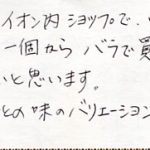 イオン内ショップで、
一個からバラで買
いと思います。
との味のバリエーション